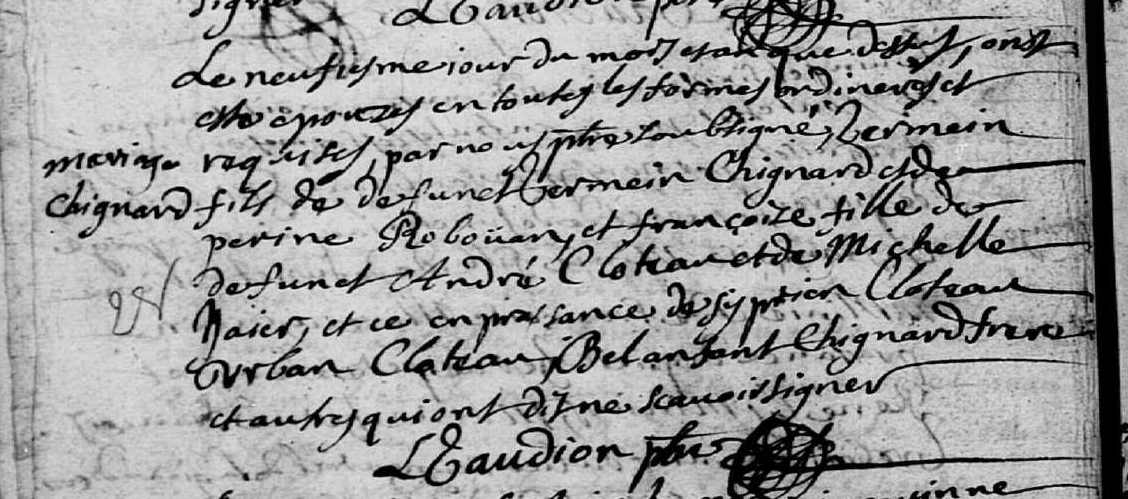 signer
LEaudion pbre
Le neufiesme jour du mois et an que dessus, onst
esté épouzés en toutes les formes ordineres et
mariage requises, par nous pbre soubsigné, Germein
Chignard fils de defunct Germein Chignard et de
perine Roboüan, et françoize fille de
defunct André Cloteau et de Michelle
Naier, et ce en presance de syprien Cloteau
Vrban Cloteau, Chignard frere
et autres qui ont dit ne scavoir signer
LEaudion pbre